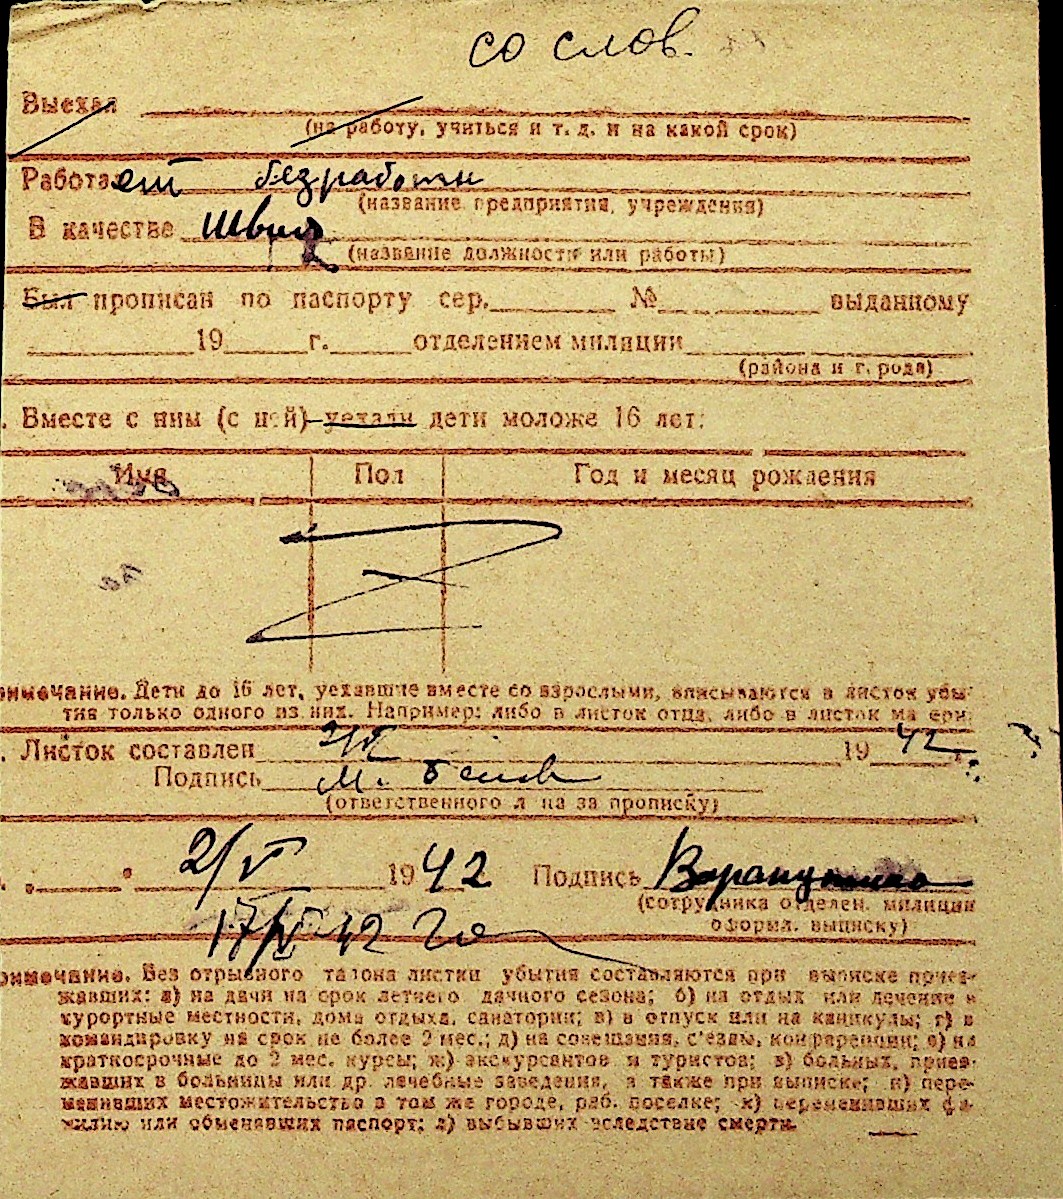 со слов.
Выехал
(на работу, учиться и т. д. и на какой срок)
Работает безработн
(название предприятия, учреждения)
В качестве швея
(название должности или работы)
Был прописан по паспорту сер. № выданному
19 г. отделением милиции
(района и города)
. Вместе с ним (с ней) уехали дети моложе 16 лет:
Имя Пол Год и месяц рождения
имечание. Дети до 16 лет, уехавшие вместе со взрослыми, вписываются в листок убы-
тия только одного из них. Например: либо в листок отца, либо в листок матери.
. Листок составлен 2/V 1942 г.
Подпись М.
(ответственного лица за прописку)
2/V 1942 Подпись
(сотрудника отделен. милиции
оформ. выписку)
17/V 42
имечание. Без отрывного талона листки убытия составляются при выписке приез-
жавших: а) на дачи на срок летнего дачного сезона; б) на отдых или лечение в
курортные местности, дома отдыха, санатории; в) в отпуск или на каникулы; г) в
командировку на срок не более 2 мес.; д) на совещания, с'езды, конференции; е) на
краткосрочные до 2 мес. курсы; ж) экскурсантов и туристов; з) больных, приез-
жавших в больницы или др. лечебные заведения, а также при выписке; и) пере-
менивших местожительство в том же городе, раб. поселке; к) переменивших фа-
милию или обменявших паспорт; л) выбывших вследствие смерти.